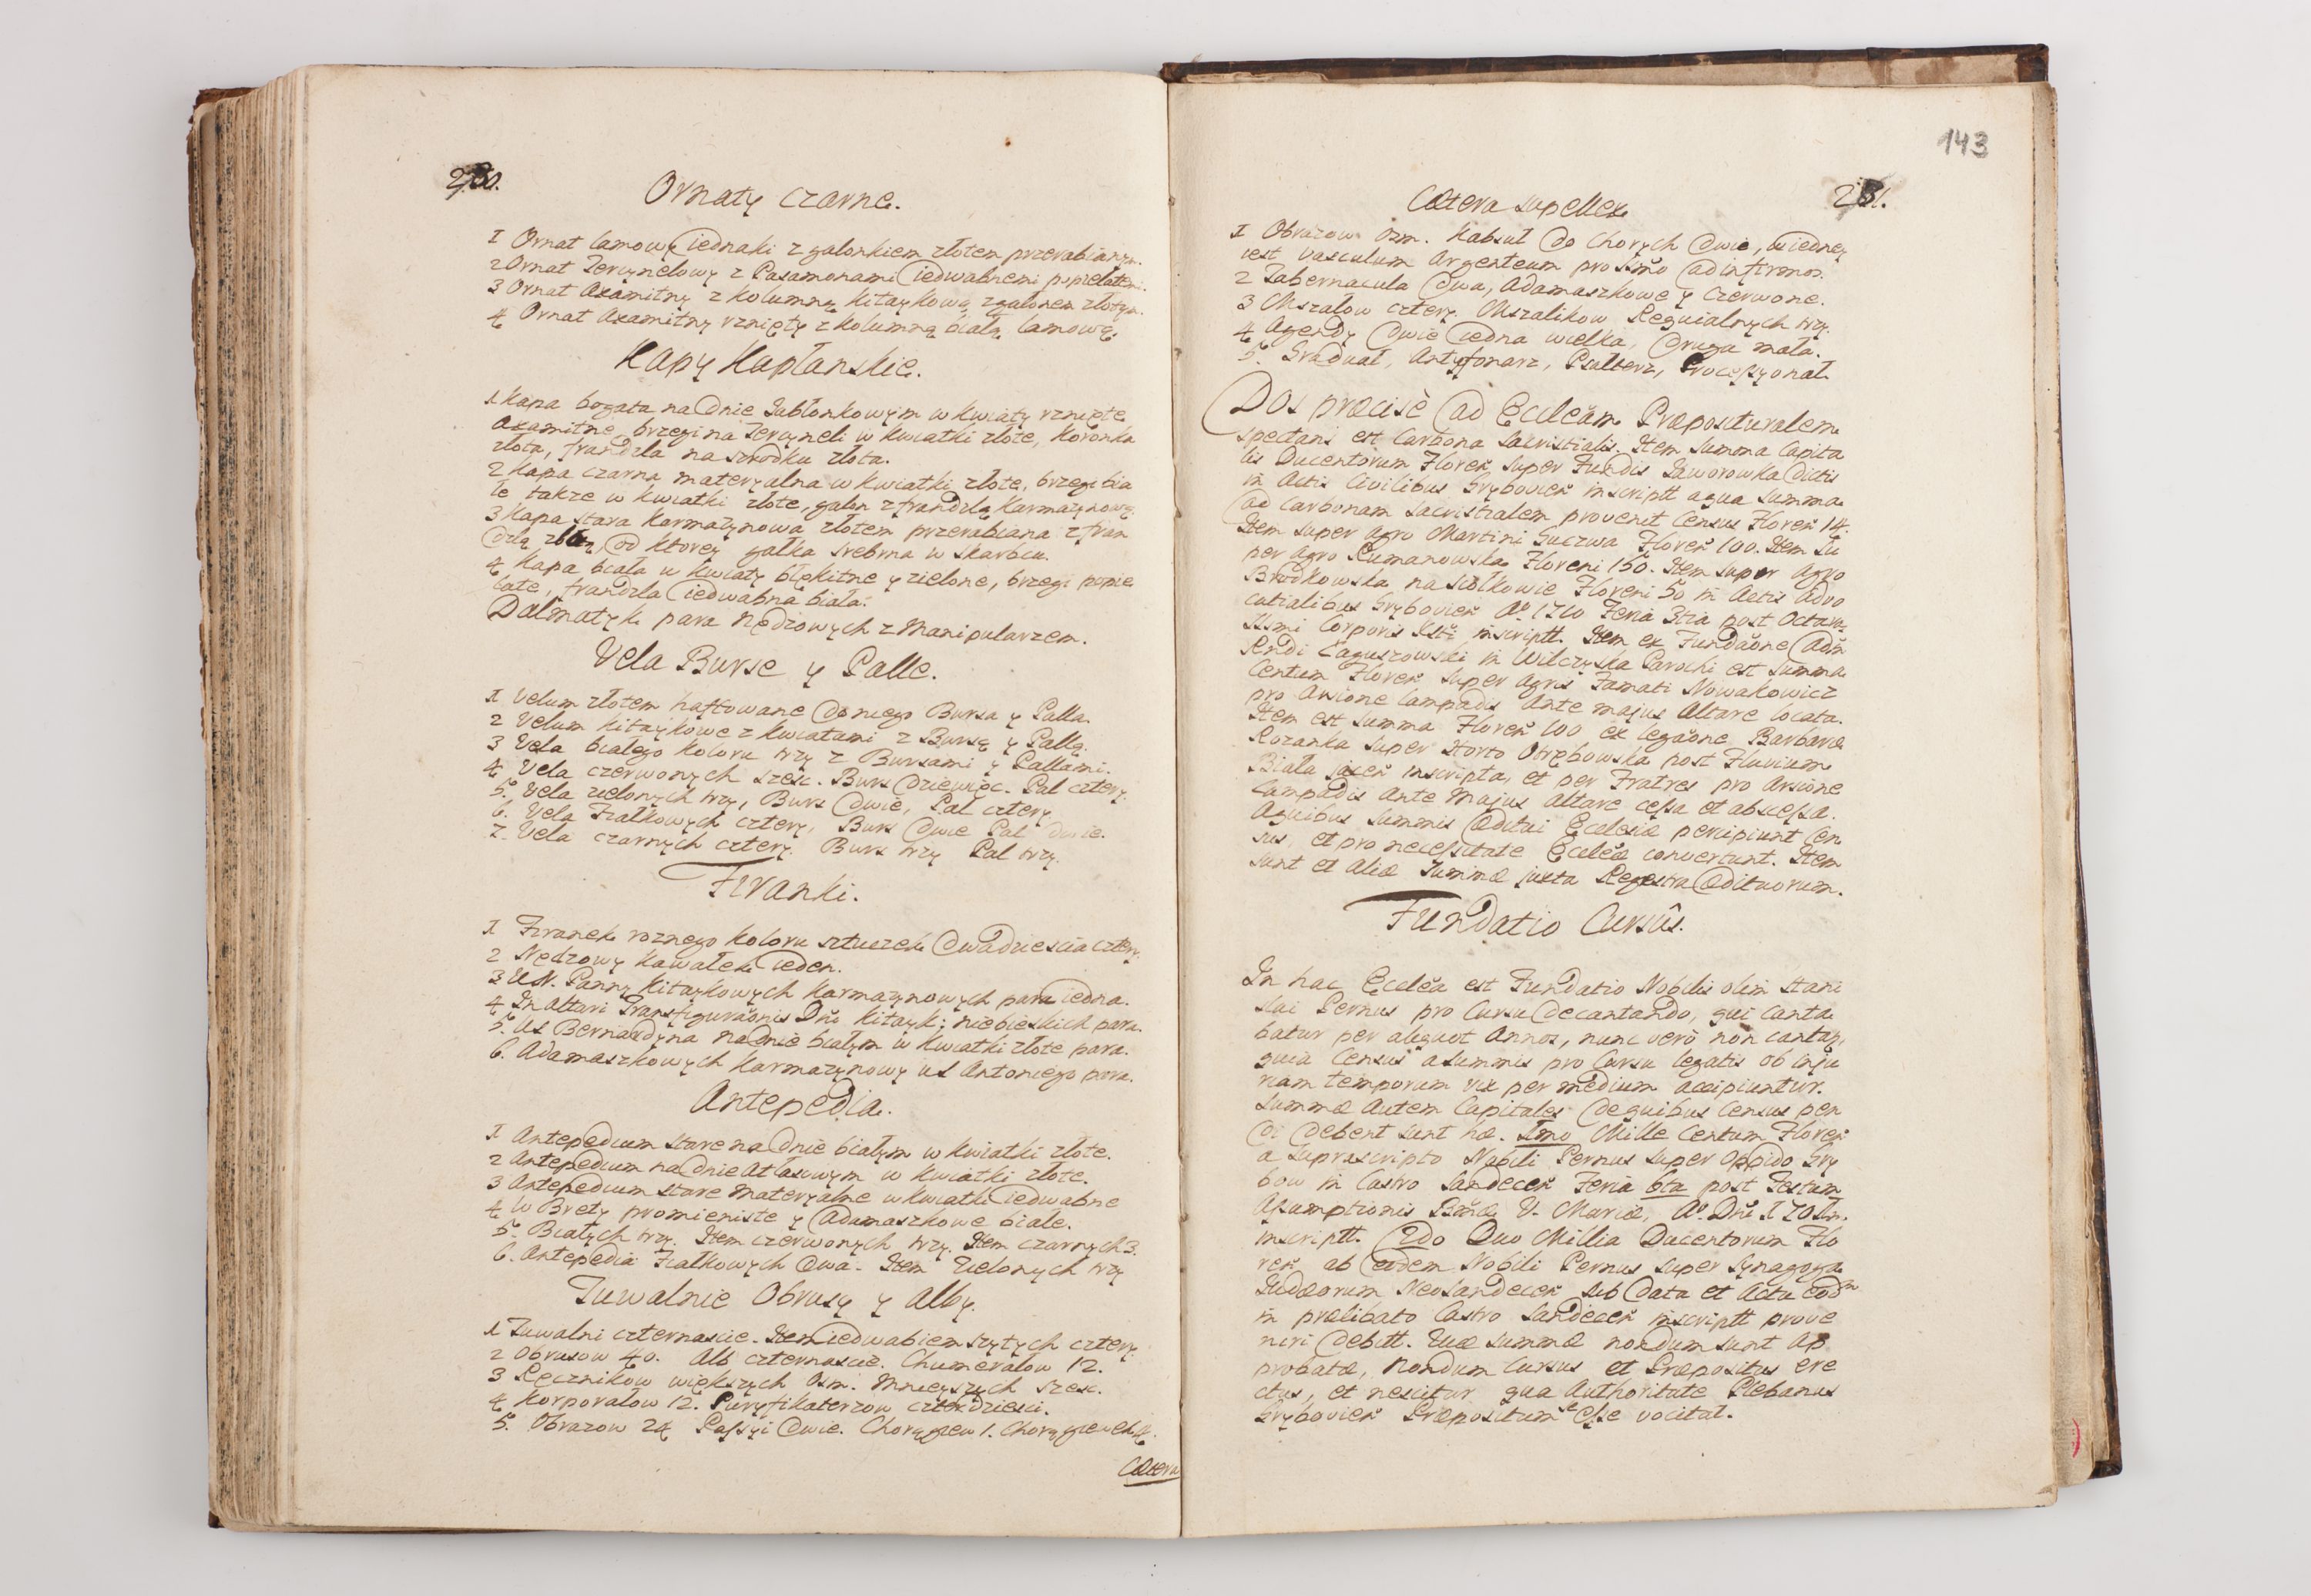 Ornaty czarne.
1 Ornat lamowy iednaki z galonkiem złotem przerabianym.
2 Ornat Tercynelowy z Pasamonami iedwabnemi popielatemi.
3 Ornat Axamitny z kolumną kitaykową z galonem złotym.
4 Ornat Axamitny rznięty z kolumną białą lamową.
Kapy Kapłanskie.
1 Kapa bogata na dnie Jabłonkowym w kwiaty rznięte
Axamitne, brzegi na Tercyneli w kwiatki złote, koronka
złota, frandzla na szrodku złota.
2 Kapa czarna materyalna w kwiatki złote, brzegi bia
łe także w kwiatki złote, galon z frandzlą karmazynową.
3 Kapa stara karmazynowa złotem przerabiana z fran
dzlą złotą, od ktorey gałka srebrna w skarbcu.
4 Kapa biała w kwiaty błękitne y zielone, brzegi popie
late, frandzla iedwabna biała.
Dalmatyk para Nędzowych z Manipularzem.
Vela Burse y Palle.
1 Velum złotem haftowane do niego Bursa y Palla.
2 Velum kitaykowe z kwiatami z Bursą y Pallą.
3 Vela białego koloru trzy z Bursami y Pallami.
4 Vela czerwonych szesc. Burs dziewięc. Pal cztery.
5. Vela zielonych trzy, Burs dwie, Pal cztery
6. Vela Fiałkowych cztery, Burs dwie Pal dwie.
7. Vela czarnych cztery. Burs trzy Pal trzy.
Firanki.
1 Firanek roznego koloru sztuczek dwadziescia cztery.
2 Nędzowy kawałek ieden.
3 U N. Panny kitaykowych karmazynowych para iedna.
4 In Altari Transfiguraonis Dni kitayk: niebieskich para.
5. U S Bernardyna na dnie białym w kwiatki złote para.
6. Adamaszkowych karmazynowy u S Antoniego para.
Antepedia.
1 Antepedium stare na dnie białym w kwiatki złote.
2 Antepedium na dnie Atłasowym w kwiatki złote.
3 Antepedium stare Materyalne w kwiatki iedwabne
4 W Brety promieniste y Adamaszkowe białe.
5. Białych trzy. Item czerwonych trzy. Item czarnych 3.
6. Antepedia Fiałkowych dwa. Item Zielonych trzy
Tuwalnie Obrusy y Alby.
1 Tuwalni czternascie. Item iedwabiem szytych cztery.
2 Obrusow 40. Alb czternascie. Chumerałow 12.
3 Ręcznikow większych Osm. Mnieyszych szesc.
4 Korporałow 12. Puryfikaterzow czterdziesci.
5. Obrazow 24 Passyi dwie. Chorągiew 1. Chorągiewek 4.
Cætera
143
Cætera supellex
1 Obrazow Osm. Kabsuł do Chorych dwie, w iedney
iest Vasculum Argenteum pro Ssmo ad infirmos.
2 Tabernacula dwa, Adamaszkowe y Czerwone.
3 Mszałow cztery. Mszalikow Requialnych trzy.
4 Agendy dwie iedna wielka, druga mała.
5. Graduał, Antyfonarz, Psałterz, Processyonał.
Dos præcisè ad Eccleam Præposituralem
spectans est Carbona Sacristialis. Item Summa Capita
lis Ducentorum Floren super Fundis Jaworowka dictis
in Actis Civilibus Grybovien inscriptt a qua Summa
ad Carbonam Sacristialem provenit Census Floren 14.
Item super Agro Martini Guczwa Floren 100. Item Su
per Agro Rumanowska Floreni 150. Item super Agro
Brodkowska na siołkowie Floreni 50 in Actis Advo
catialibus Grybovien Ao 1710 Feria 3tia post Octavam
SSmi Corporis Xsti inscriptt. Item ex Fundaone Adm
Rendi Łaguszowski in Wilczyska Parochi est Summa
Centum Floren super Agris Famati Nowakowicz
pro Arsione lampadis Ante majus Altare locata.
Item est summa Floren 100 ex legaone Barbaræ
Rozanka super Horto Otrębowska post Fluvium
Biała jacen inscripta, et per Fratres pro Arsione
Lampadis Ante Majus Altare cessa et abscessa.
A quibus Summis Æditui Ecclesiæ percipiunt Cen
sus, et pro necessitate Ecclæ convertunt. Item
sunt et aliæ Summæ juxta Regestra Ædituorum.
Fundatio Cursûs.
In hac Ecclea est Fundatio Nobilis olim Stani
slai Pernus pro Cursu decantando, qui Canta
batur per aliquot Annos, nunc verò non cantatr,
quia Census a summis pro Cursu legatis ob inju
riam temporum vix per medium accipiuntur.
Summæ Autem Capitales de quibus Census pen
di debent sunt hæ. 1mo Mille Centum Floren
a Suprascripto Nobili Pernus super Oppido Gry
bow in Castro Sandecen Feria 6ta post Festum
Assumptionis V. Mariæ, Ao Dni
inscriptt. 2do Duo Millia Ducentorum Flo
ren ab eodem Nobili Pernus super Synagoga
Judæorum NeoSandecen sub data et Actu eodm
in prælibato Castro Sandecen inscriptt prove
niri debitt. Quæ summæ nondum sunt Ap
probatæ, Nondum Cursus et Præpositus ere
ctus, et nescitur qua Authoritate Plebanus
Grybovien Præpositum se esse vocitat.